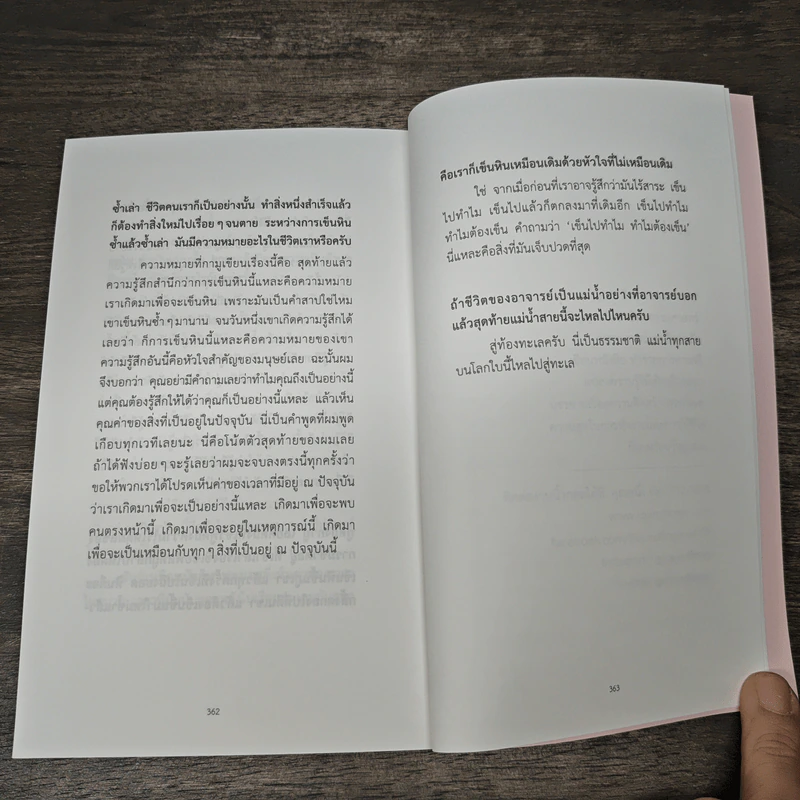 ซ้ำเล่า ชีวิตคนเราก็เป็นอย่างนั้น ทำสิ่งหนึ่งสำเร็จแล้ว
ก็ต้องทำสิ่งใหม่ไปเรื่อย ๆ จนตาย ระหว่างการเข็นหิน
ซ้ำแล้วซ้ำเล่า มันมีความหมายอะไรในชีวิตเราหรือครับ
ความหมายที่กามูเขียนเรื่องนี้คือ สุดท้ายแล้ว
ความรู้สึกสำนึกว่าการเข็นหินนี้แหละคือความหมาย
เราเกิดมาเพื่อจะเข็นหิน เพราะมันเป็นคำสาปใช่ไหม
เขาเข็นหินซ้ำ ๆ มานาน จนวันหนึ่งเขาเกิดความรู้สึกได้
เลยว่า ก็การเข็นหินนี้แหละคือความหมายของเขา
ความรู้สึกอันนี้คือหัวใจสำคัญของมนุษย์เลย ฉะนั้นผม
จึงบอกว่า คุณอย่ามีคำถามเลยว่าทำไมคุณถึงเป็นอย่างนี้
แต่คุณต้องรู้สึกให้ได้ว่าคุณก็เป็นอย่างนี้แหละ แล้วเห็น
คุณค่าของสิ่งที่เป็นอยู่ในปัจจุบัน นี่เป็นคำพูดที่ผมพูด
เกือบทุกเวทีเลยนะ นี่คือโน้ตตัวสุดท้ายของผมเลย
ถ้าได้ฟังบ่อย ๆ จะรู้เลยว่าผมจะจบลงตรงนี้ทุกครั้งว่า
ขอให้พวกเราได้โปรดเห็นค่าของเวลาที่มีอยู่ ณ ปัจจุบัน
ว่าเราเกิดมาเพื่อจะเป็นอย่างนี้แหละ เกิดมาเพื่อจะพบ
คนตรงหน้านี้ เกิดมาเพื่อจะอยู่ในเหตุการณ์นี้ เกิดมา
เพื่อจะเป็นเหมือนกับทุก ๆ สิ่งที่เป็นอยู่ ณ ปัจจุบันนี้
362
คือเราก็เข็นหินเหมือนเดิมด้วยหัวใจที่ไม่เหมือนเดิม
ใช่ จากเมื่อก่อนที่เราอาจรู้สึกว่ามันไร้สาระ เข็น
ไปทำไม เข็นไปแล้วก็ตกลงมาที่เดิมอีก เข็นไปทำไม
ทำไมต้องเข็น คำถามว่า ‘เข็นไปทำไม ทำไมต้องเข็น’
นี่แหละคือสิ่งที่มันเจ็บปวดที่สุด
ถ้าชีวิตของอาจารย์เป็นแม่น้ำอย่างที่อาจารย์บอก
แล้วสุดท้ายแม่น้ำสายนี้จะไหลไปไหนครับ
สู่ท้องทะเลครับ นี่เป็นธรรมชาติ แม่น้ำทุกสาย
บนโลกใบนี้ไหลไปสู่ทะเล
363